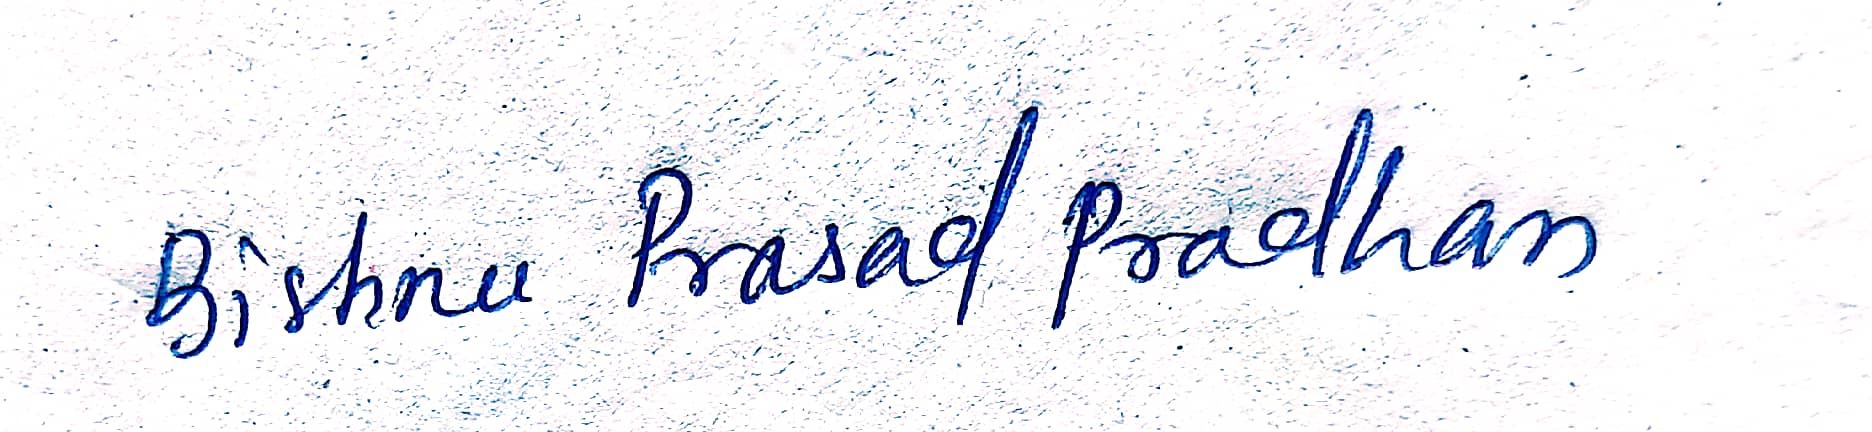 Bishnu Prasad Pradhan